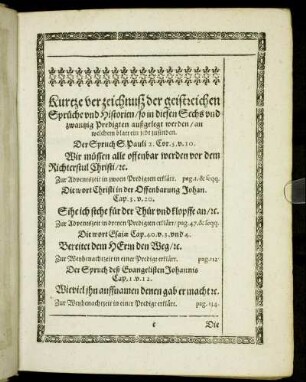 Kurtze verzeichnuß der geistreichen
Sprüche vnd Historien / so in diesen Sechs vnd
zwantzig Predigten außgelegt werden / an
welchem blatt ein jede zufinden.
Der Spruch S. Pauli 2. Cor. 5. v. 10.
Wir müssen alle offenbar werden vor dem
Richterstul Christi / ꝛc.
Zur Adventszeit in zweien Predigten erklärt. pag. 2. & seqq.
Die wort Christi in der Offenbarung Johan.
Cap. 3. v. 20.
Sihe ich stehe für der Thür vnd klopffe an / ꝛc.
Zur Adventszeit in dreyen Predigten erklärt / pag. 47. & seqq.
Die wort Esaiæ Cap. 40. v. 3. vnd 4.
Bereitet dem HErrn den Weg / ꝛc.
Zur Weyhnachtzeit in einer Predigt erklärt. pag. 112
Der Spruch deß Evangelisten Johannis
Cap. 1. v. 12.
Wieviel jhn auffnamen denen gab er macht ꝛc.
Zur Weyhnachtzeit in einer Predigt erklärt. pag. 134.
e Die